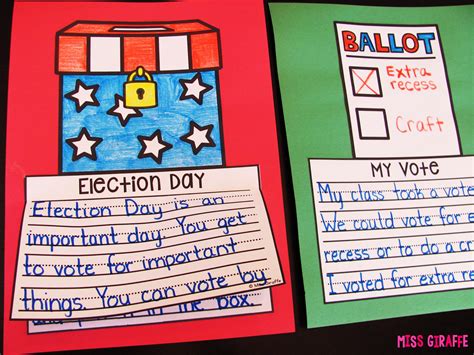 Election Day
Election Day is an
important day. You get
to vote for important
things. You can vote by
in the box.
© Miss Giraffe
BALLOT
Extra
recess
Craft
My Vote
My class took a vote
We could vote for
recess or to do a cr
I voted for extra re
MISS GIRAFFE